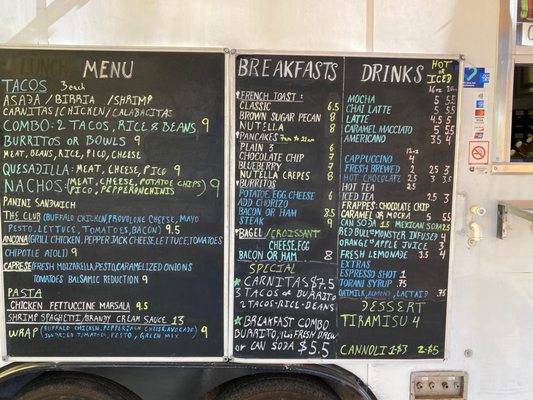 MENU
TACOS 3 each
ASADA / BIRRIA / SHRIMP
CARNITAS/CHICKEN/CALABACITAS
COMBO: 2 TACOS, RICE & BEANS 9
BURRITOS OR BOWLS 9
MEAT, BEANS, RICE, PICO, CHEESE
QUESADILLA: MEAT, CHEESE, PICO 9
NACHOS: (MEAT, CHEESE, POTATOE CHIPS) 9
PICO, PEPPERONCHINIS
PANINI SANDWICH
THE CLUB (BUFFALO CHICKEN, PROVOLONE CHEESE, MAYO
PESTO, LETTUCE, TOMATOES, BACON) 9.5
ANCONA (GRILL CHICKEN, PEPPER JACK CHEESE, LETTUCE, TOMATOES
CHIPOTLE AIOLI) 9
CAPRESE FRESH MOZARELLA, PESTO, CARAMELIZED ONIONS
TOMATOES BALSAMIC REDUCTION 9
PASTA
CHICKEN FETTUCCINE MARSALA 9.5
SHRIMP SPAGHETTI/BRANDY CREAM SAUCE 13
WRAP (BUFFALO CHICKEN, PEPPERJACK CHEESE, AVOCADO) 9
SUNDRIED TOMATOES, PESTO, GREEN MIX
BREAKFASTS
FRENCH TOAST:
CLASSIC 6.5
BROWN SUGAR PECAN 8
NUTELLA 8
PANCAKES 7am to 11am
PLAIN 3 6
CHOCOLATE CHIP 7
BLUEBERRY 7
NUTELLA CREPES 8
BURRITOS
POTATOE, EGG, CHEESE 6
ADD CHORIZO
BACON OR HAM 8.5
STEAK 9
BAGEL/CROISSANT
CHEESE, EGG
BACON OR HAM 8
SPECIAL
CARNITAS $7.5
3 TACOS OR BURRITO
2 TACOS-RICE-BEANS
BREAKFAST COMBO
BURRITO, 12oz FRESH BREW
OR CAN SODA $5.5
DRINKS HOT OR ICED
16oz 20oz
MOCHA 5 5.5
CHAI LATTE 5 5.5
LATTE 4.5 5
CARAMEL MACCIATO 5 5.5
AMERICANO 3.5 4
12oz
CAPPUCCINO 4
FRESH BREWED 2 2.5 3
HOT CHOCOLATE 2.5 3 3.5
HOT TEA 2.5
ICED TEA 2.5 3
FRAPPES: CHOCOLATE CHIP
CARAMEL OR MOCHA 5 5.5
CAN SODA 1.5 MEXICAN SODA 2.5
RED BULL OR MONSTER INFUSED 4
ORANGE OR APPLE JUICE 3
FRESH LEMONADE 3.5 4
EXTRAS
ESPRESSO SHOT 1
TORANI SYRUP .75
OATMILK, ALMOND, LACTAID .75
DESSERT
TIRAMISU 4
CANNOLI 1-$3 2-$5